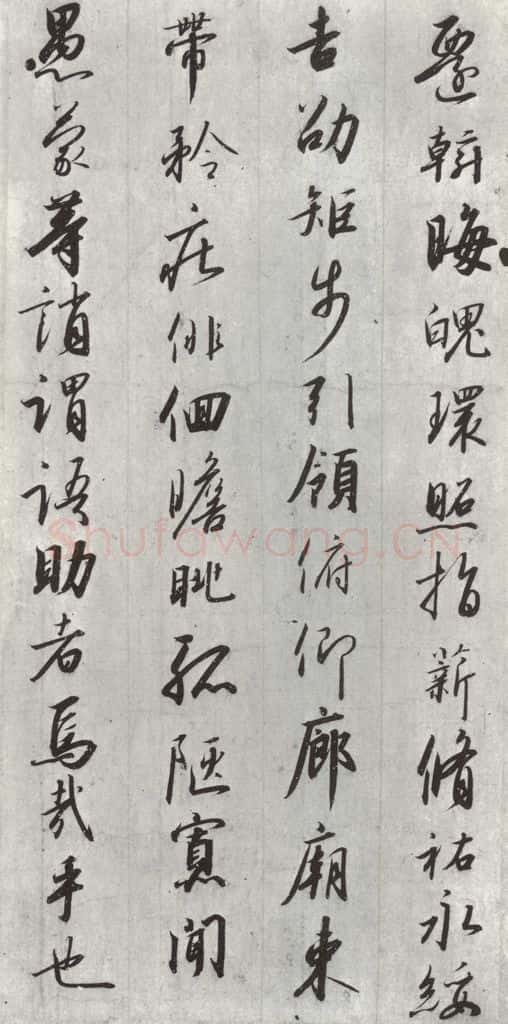 斡晦魄環照指薪脩祐永綏
吉劭矩步引領俯仰廊廟束
帶矜庄俳佪瞻眺孤陋寡聞
愚蒙等誚謂語助者焉哉乎也
Shufawang.CN